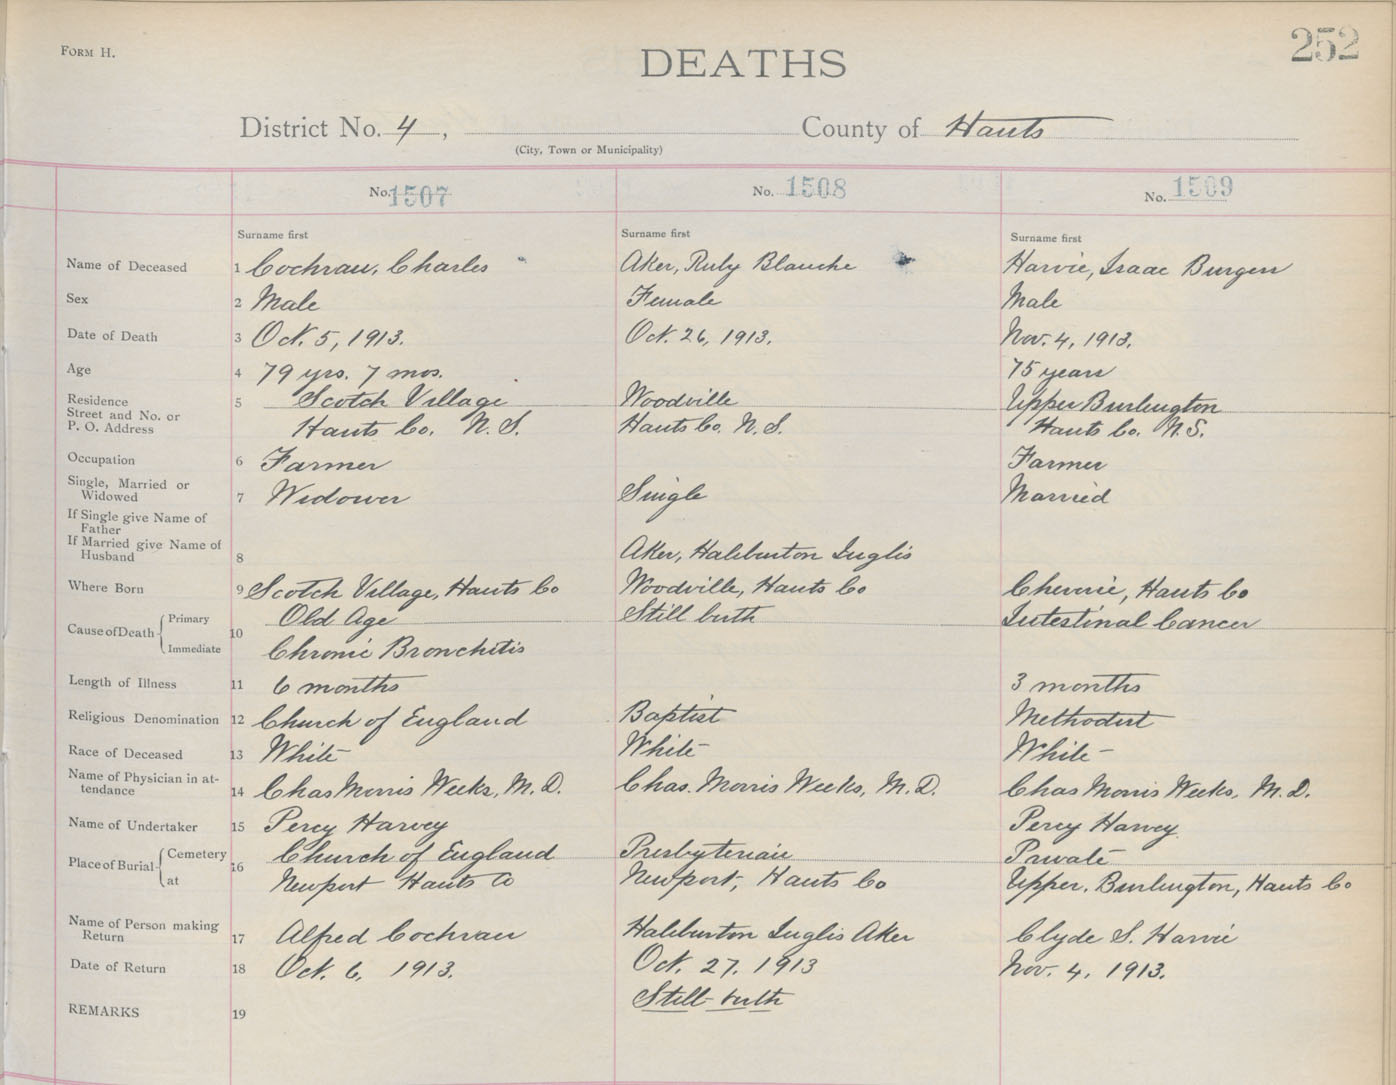 FORM H.
252
DEATHS
District No. 4, County of Hants
(City, Town or Municipality)
No. 1507 No. 1508 No. 1509
Surname first Surname first Surname first
Name of Deceased 1 Cochran, Charles Aker, Ruby Blanche Harvie, Isaac Burgess
Sex 2 Male Female Male
Date of Death 3 Oct. 5, 1913. Oct. 26, 1913. Nov. 4, 1913.
Age 4 79 yrs. 7 mos. 75 years
Residence 5 Scotch Village Woodville Upper Burlington
Street and No. or
P. O. Address Hants Co. N. S. Hants Co. N. S. Hants Co. N. S.
Occupation 6 Farmer Farmer
Single, Married or
Widowed 7 Widower Single Married
If Single give Name of
Father
If Married give Name of
Husband 8 Aker, Haliburton Inglis
Where Born 9 Scotch Village, Hants Co Woodville, Hants Co Cheverie, Hants Co
Cause of Death Primary 10 Old Age Still birth Intestinal Cancer
Immediate Chronic Bronchitis
Length of Illness 11 6 months 3 months
Religious Denomination 12 Church of England Baptist Methodist
Race of Deceased 13 White White White
Name of Physician in at-
tendance 14 Chas Morris Weeks, M. D. Chas. Morris Weeks, M. D. Chas Morris Weeks, M. D.
Name of Undertaker 15 Percy Harvey Percy Harvey
Place of Burial Cemetery 16 Church of England Presbyterian Private
at Newport Hants Co Newport, Hants Co Upper. Burlington, Hants Co
Name of Person making
Return 17 Alfred Cochran Haliburton Inglis Aker Clyde S. Harvie
Date of Return 18 Oct. 6, 1913. Oct. 27. 1913 Nov. 4, 1913.
REMARKS 19 Still-birth